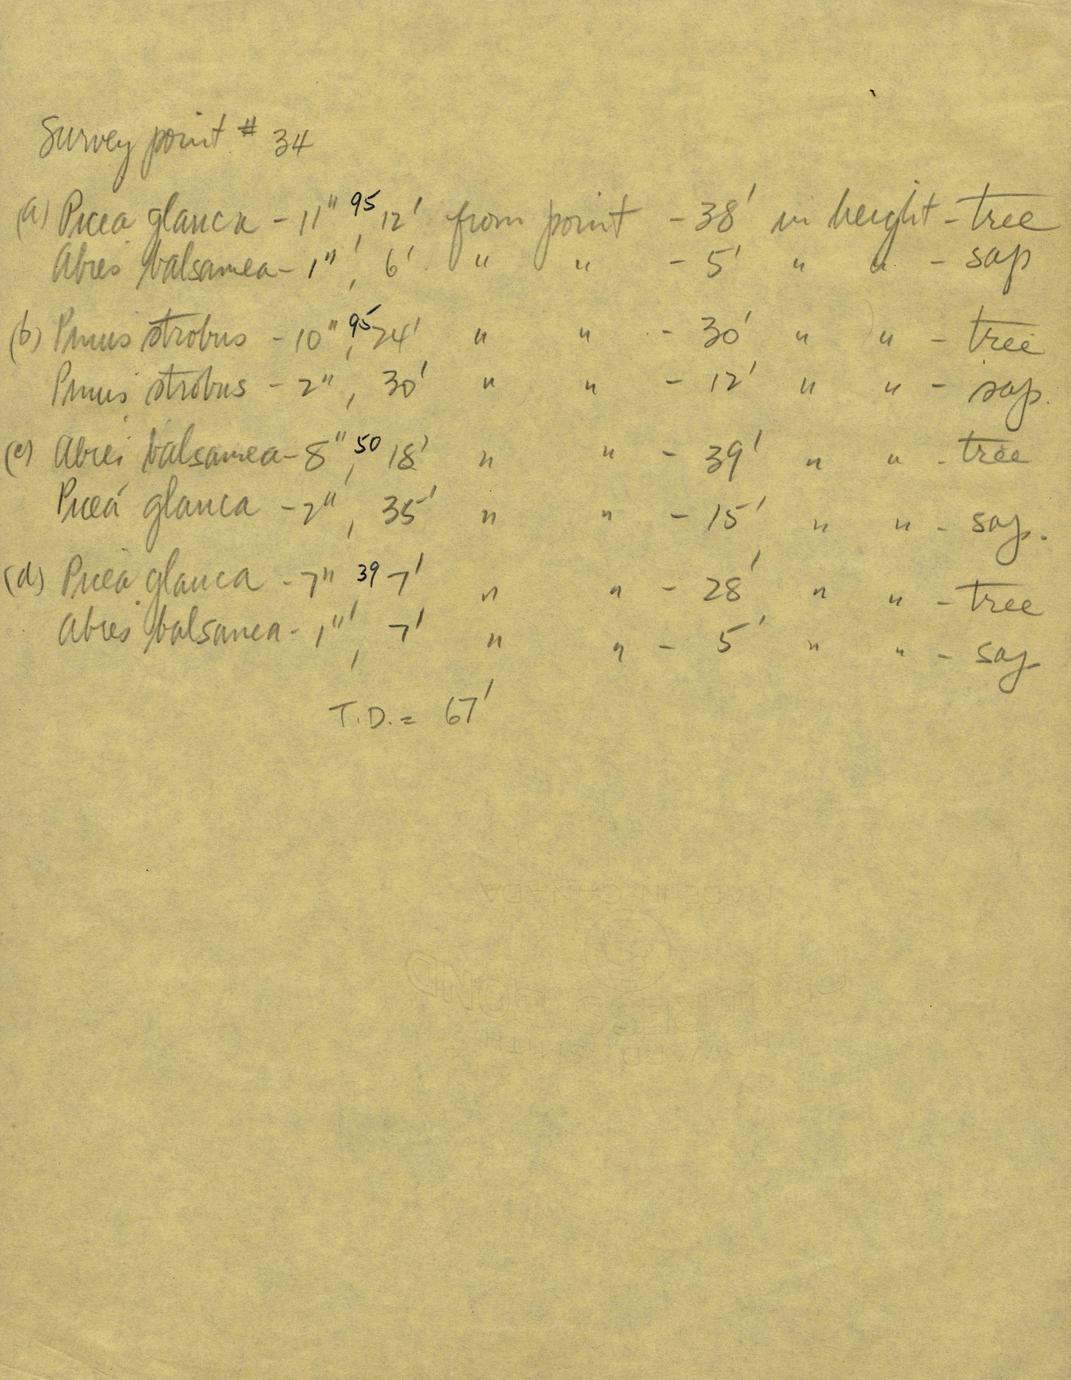 Survey point # 34
(a) Picea glauca - 11", 95 12' from point - 38' in height - tree
Abies balsamea - 1", 6' " " - 5' " " - sap
(b) Pinus strobus - 10", 95 24' " " - 30' " " - tree
Pinus strobus - 2", 30' " " - 12' " " - sap.
(c) Abies balsamea - 8", 50 18' " " - 39' " " - tree
Picea glauca - 2", 35' " " - 15' " " - sap.
(d) Picea glauca - 7" 39 7' " " - 28' " " - tree
Abies balsamea - 1", 7' " " - 5' " " - sap
T.D. = 67'
MADE IN CANADA
BOND